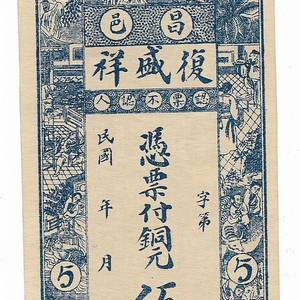 昌邑
復盛祥
認票不認人
字第
憑票付銅元伍
民國 年 月
5 5